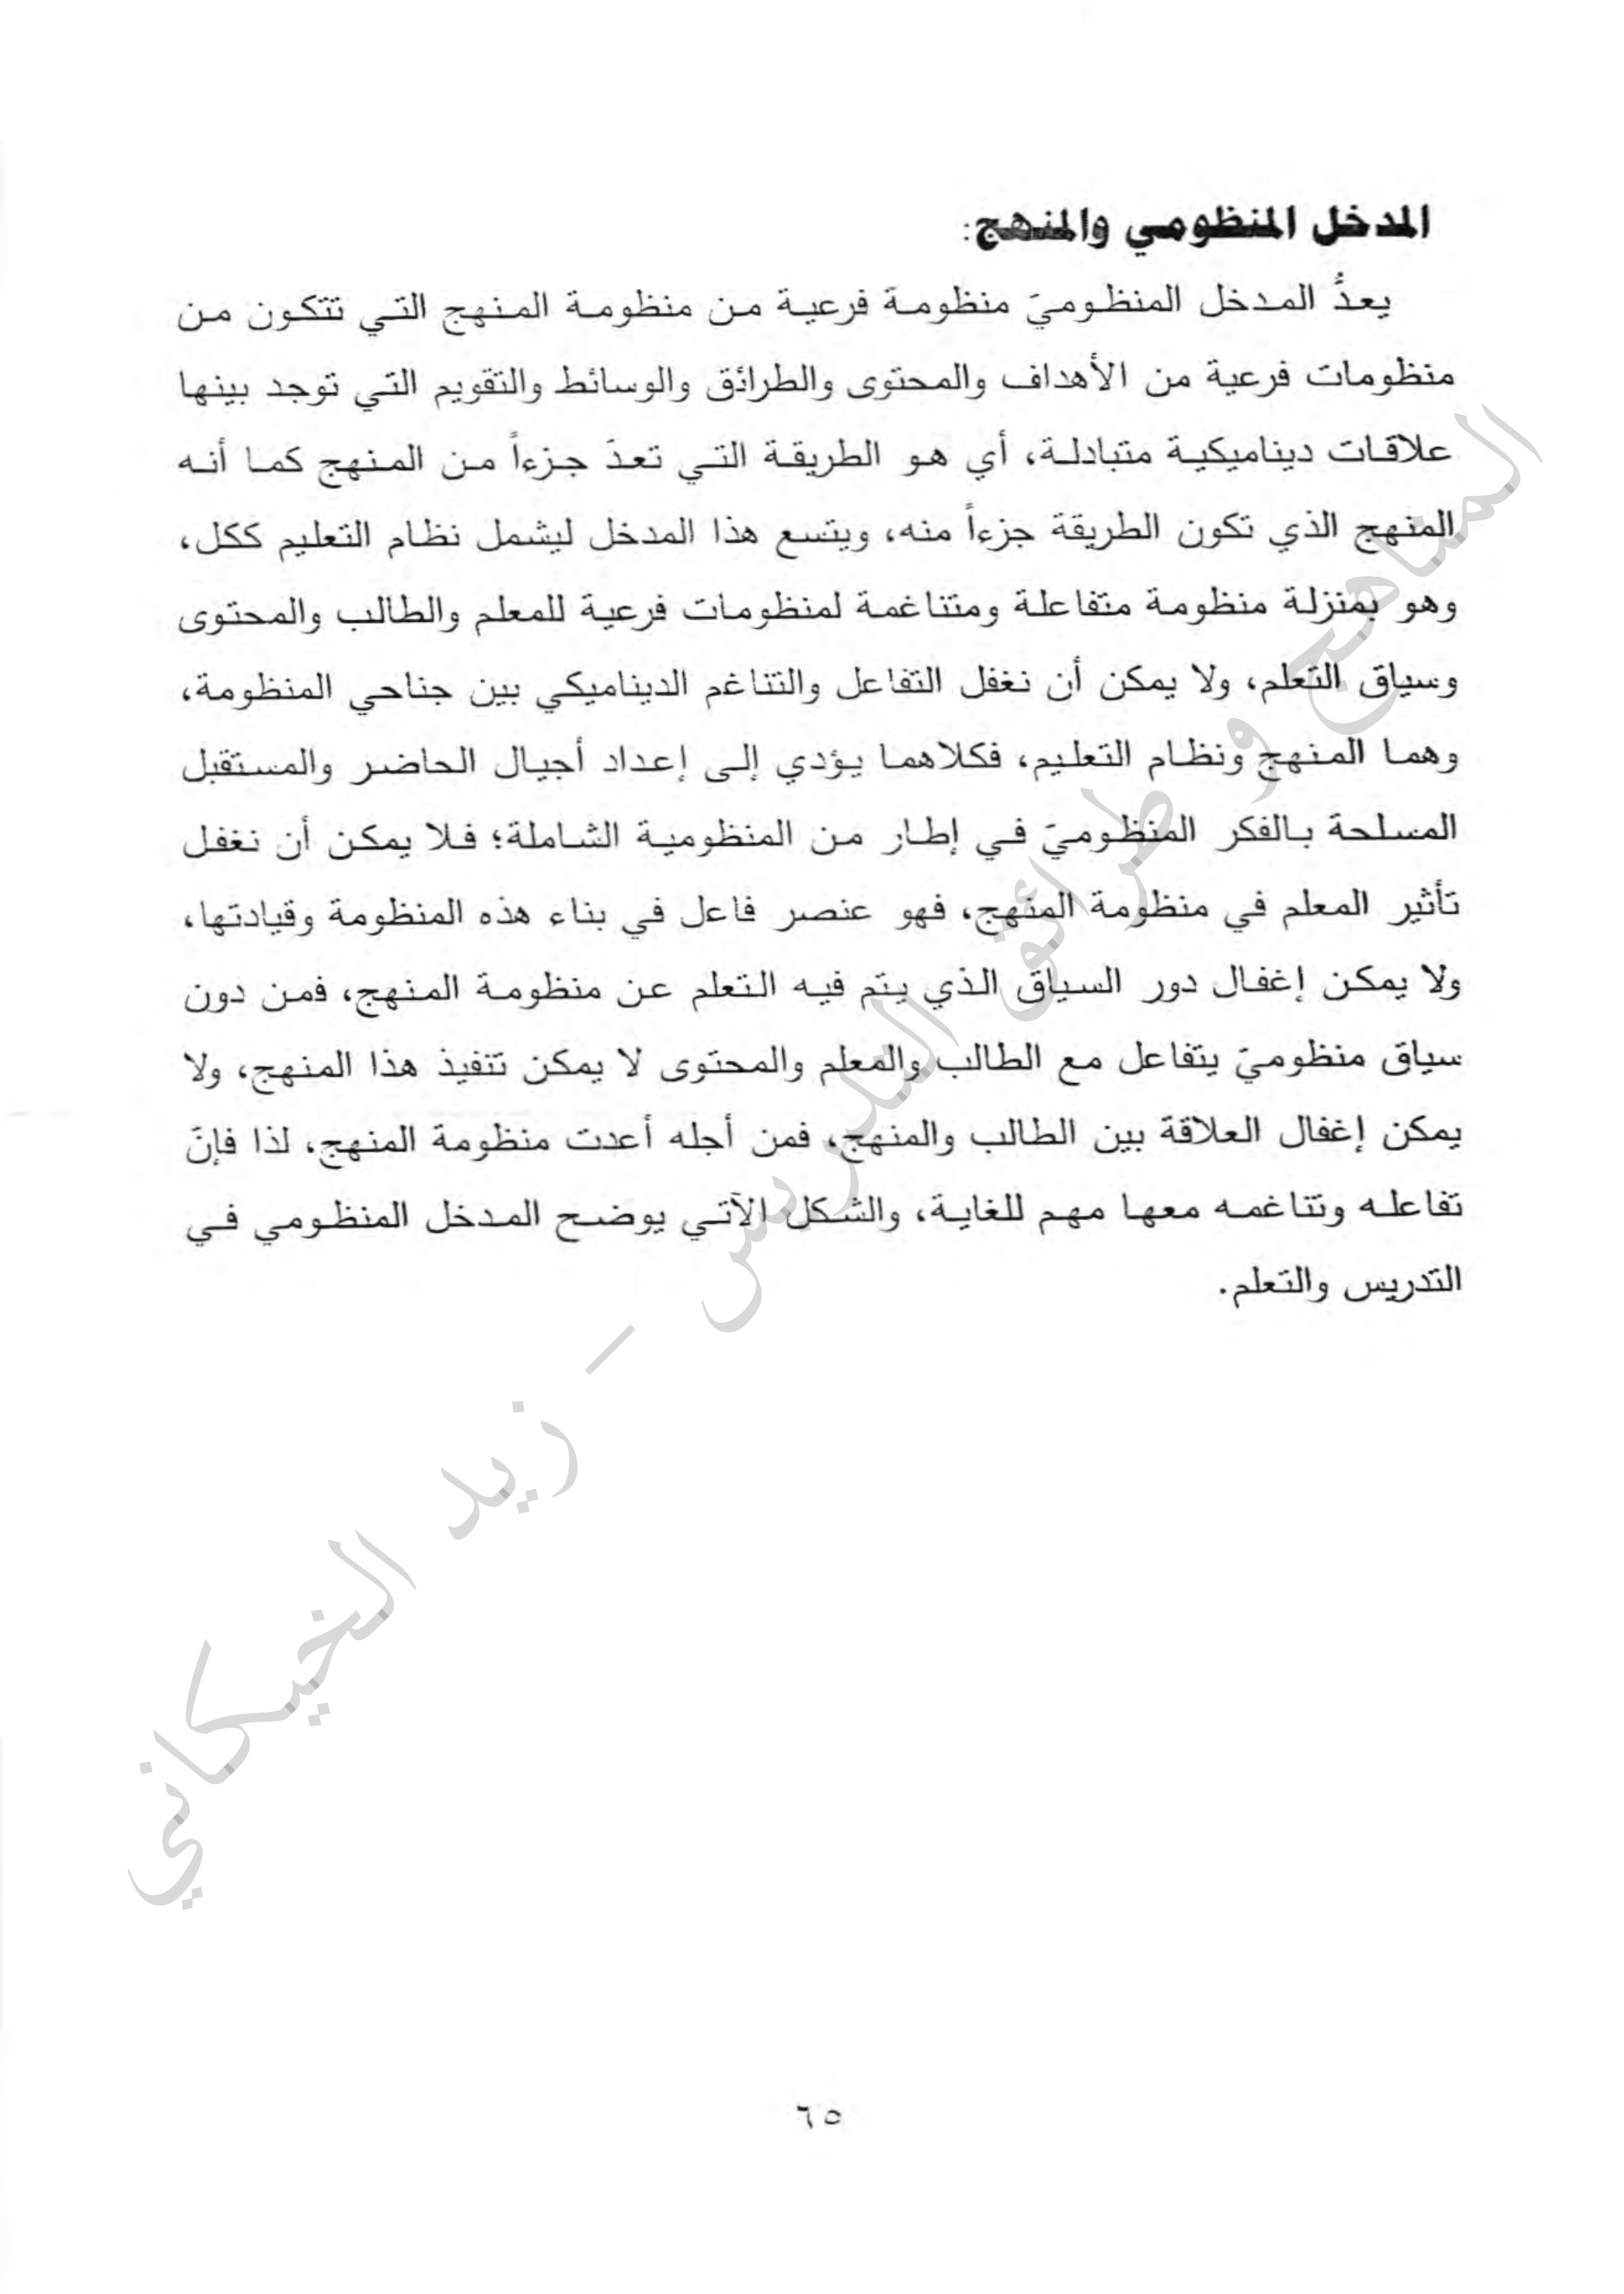 المدخل المنظومي والمنهج:
يعدُّ المدخل المنظوميّ منظومة فرعية من منظومة المنهج التي تتكون من
منظومات فرعية من الأهداف والمحتوى والطرائق والوسائط والتقويم التي توجد بينها
علاقات ديناميكية متبادلة، أي هو الطريقة التي تعدّ جزءاً من المنهج كما أنه
المنهج الذي تكون الطريقة جزءاً منه، ويتسع هذا المدخل ليشمل نظام التعليم ككل،
وهو بمنزلة منظومة متفاعلة ومتناغمة لمنظومات فرعية للمعلم والطالب والمحتوى
وسياق التعلم، ولا يمكن أن نغفل التفاعل والتناغم الديناميكي بين جناحي المنظومة،
وهما المنهج ونظام التعليم، فكلاهما يؤدي إلى إعداد أجيال الحاضر والمستقبل
المسلحة بالفكر المنظوميّ في إطار من المنظومية الشاملة؛ فلا يمكن أن نغفل
تأثير المعلم في منظومة المنهج، فهو عنصر فاعل في بناء هذه المنظومة وقيادتها،
ولا يمكن إغفال دور السياق الذي يتم فيه التعلم عن منظومة المنهج، فمن دون
سياق منظوميّ يتفاعل مع الطالب والمعلم والمحتوى لا يمكن تنفيذ هذا المنهج، ولا
يمكن إغفال العلاقة بين الطالب والمنهج، فمن أجله أعدت منظومة المنهج، لذا فإنّ
تفاعله وتناغمه معها مهم للغاية، والشكل الآتي يوضح المدخل المنظومي في
التدريس والتعلم.
المناهج و طرائق التدريس – زيد الخيكاني
٦٥